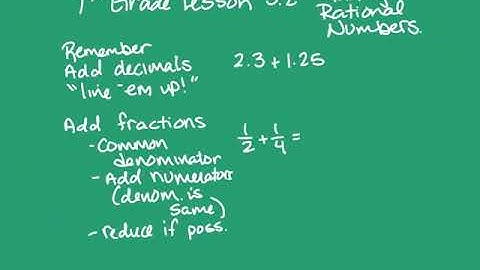 Grade Lesson
Rational
Numbers.
Remember
Add decimals
"line 'em up!"
2.3 + 1.25
Add fractions
- Common
denominator
- Add numerators
(denom. is
same)
- reduce if poss.
1/2 + 1/4 =